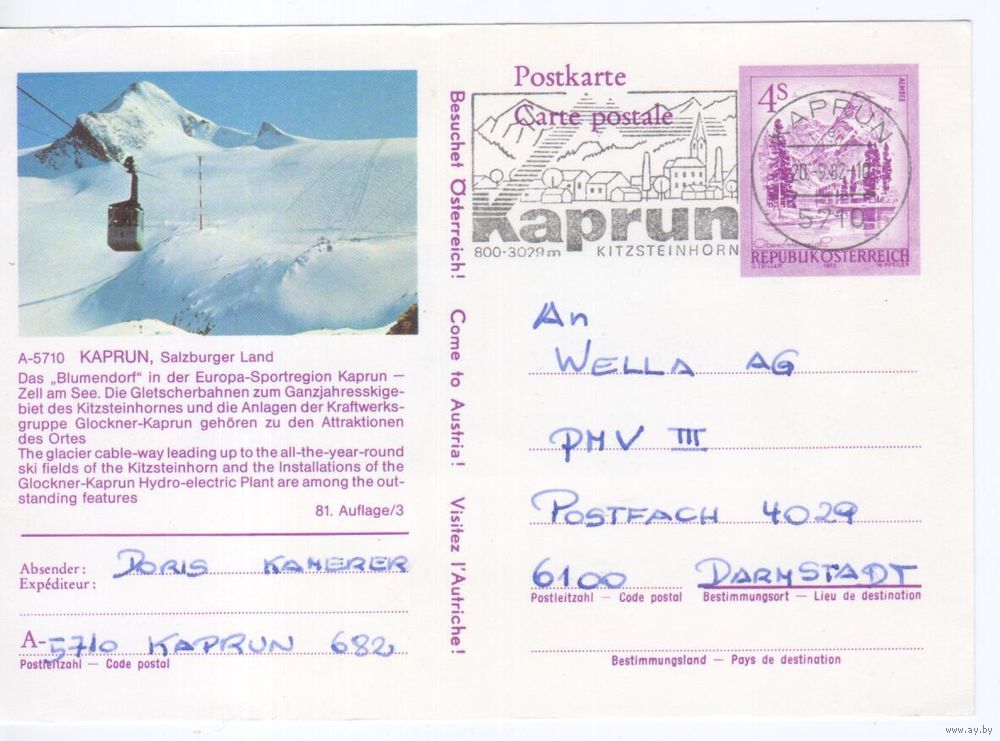 A-5710 KAPRUN, Salzburger Land
Das „Blumendorf" in der Europa-Sportregion Kaprun —
Zell am See. Die Gletscherbahnen zum Ganzjahresskige-
biet des Kitzsteinhornes und die Anlagen der Kraftwerks-
gruppe Glockner-Kaprun gehören zu den Attraktionen
des Ortes
The glacier cable-way leading up to the all-the-year-round
ski fields of the Kitzsteinhorn and the Installations of the
Glockner-Kaprun Hydro-electric Plant are among the out-
standing features
81. Auflage/3
Absender: DORIS KAMERER
Expéditeur:
A-5710 KAPRUN 682
Postleitzahl — Code postal
Besuchet Österreich! Come to Austria! Visitez l'Autriche!
Postkarte
Carte postale
Kaprun
800-3029m KITZSTEINHORN
4S
ALMSEE
KAPRUN
5710
REPUBLIK ÖSTERREICH
An
WELLA AG
PMV III
POSTFACH 4029
6100 DARMSTADT
Postleitzahl — Code postal Bestimmungsort — Lieu de destination
Bestimmungsland — Pays de destination
www.ay.by